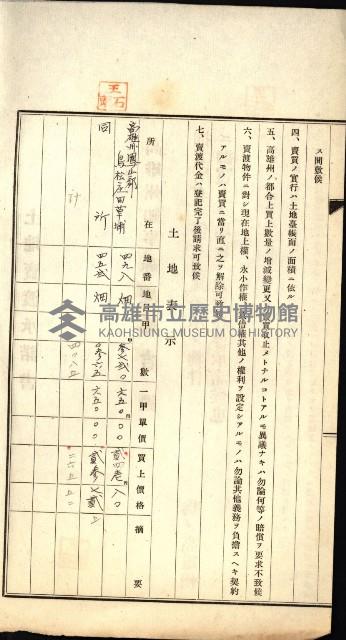 ス間敷候
四、賣買ノ實行ハ土地臺帳面ノ面積ニ依ル
五、高雄州ノ都合上買上數量ノ增減變更又ハ買收取止メトナルコトアルモ異議ナキハ勿論何等ノ賠償ヲ要求不致候
六、賣渡物件ニ對シ現在地上權、永小作權、賃借權其他ノ權利ヲ設定シアルモノハ勿論其他義務ヲ負擔スヘキ契約
アルモノハ賣買ニ當リ直ニ之ヲ解除可致
七、賣渡代金ハ登記完了後請求可致候
土地表示
所在 地番 地目 甲數 一甲單價 買上價格 摘要
高雄州鳳山郡
鳥松庄田草埔 四九八 畑 六五〇〇〇
同所 四五弍 畑 〇參六五 六五〇〇〇 貳參七貳
計
玉石
高雄市立歷史博物館
KAOHSIUNG MUSEUM OF HISTORY